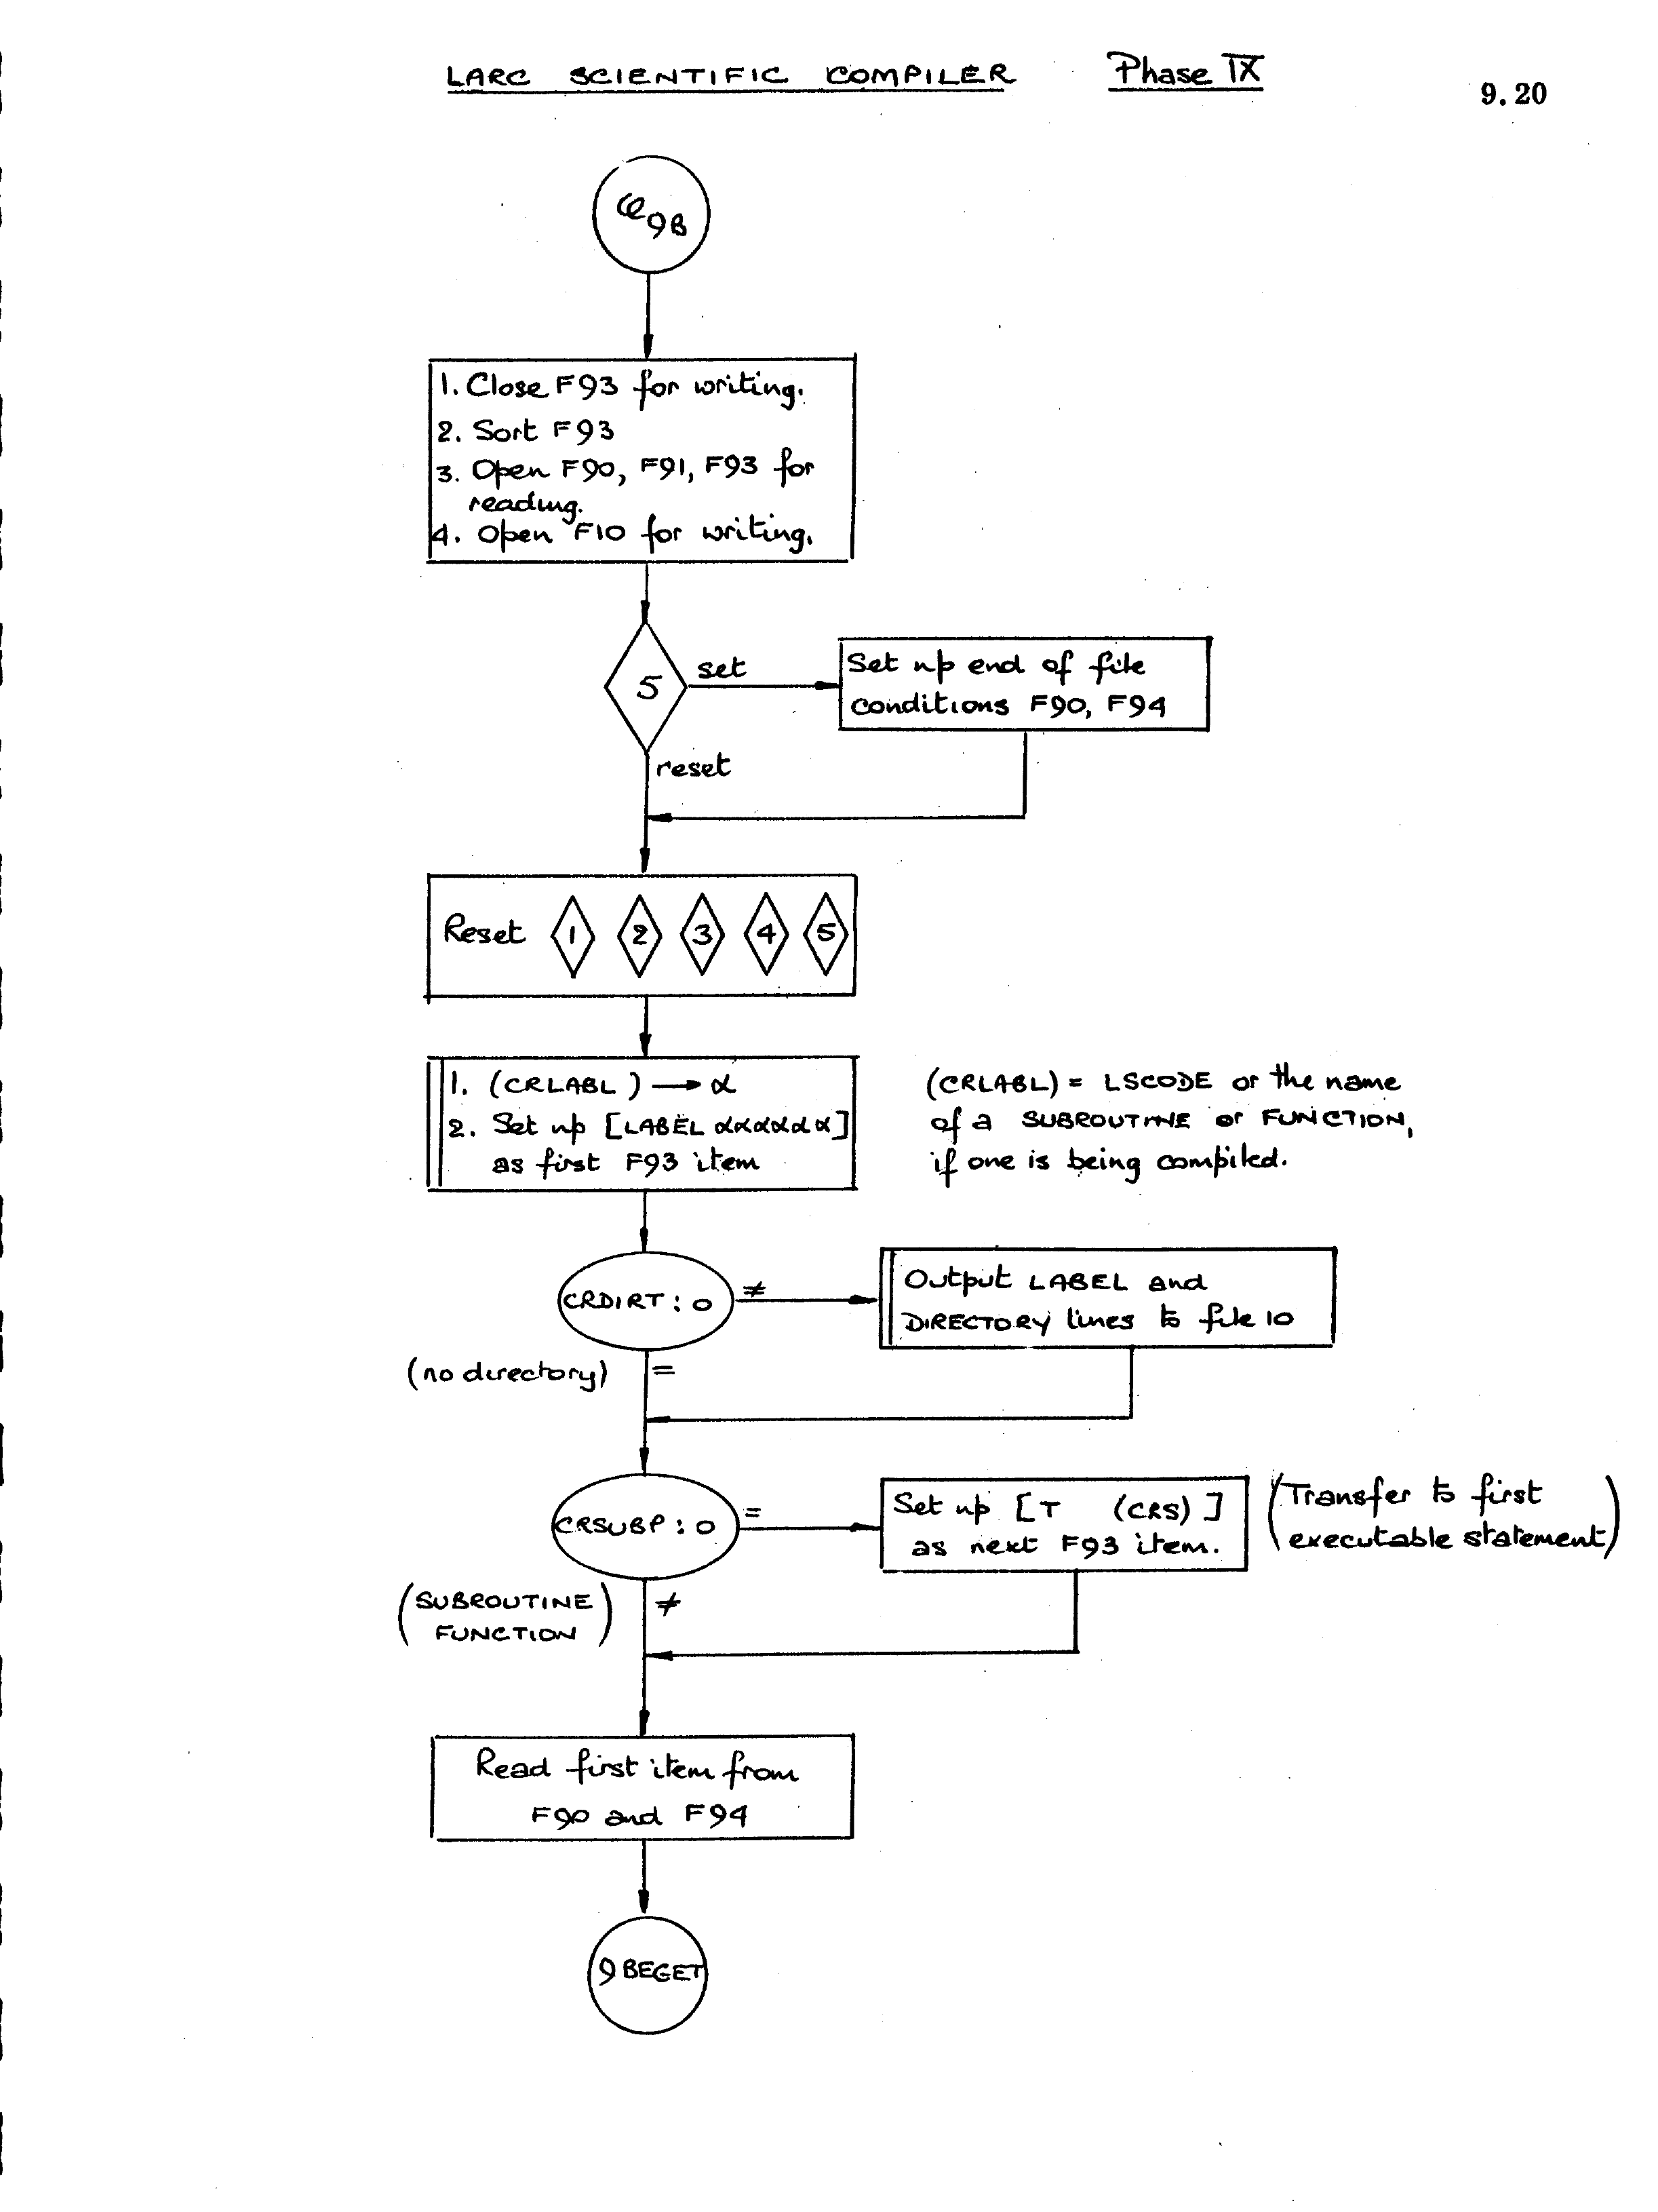 LARC SCIENTIFIC COMPILER Phase IX
9.20
9B
1. Close F93 for writing.
2. Sort F93
3. Open F90, F91, F93 for
reading.
4. Open F10 for writing.
5
set
Set up end of file
conditions F90, F94
reset
Reset 1 2 3 4 5
1. (CRLABL) → α
2. Set up [LABEL αααααα]
as first F93 item
(CRLABL) = LSCODE or the name
of a SUBROUTINE or FUNCTION,
if one is being compiled.
CRDIRT : 0
≠
Output LABEL and
DIRECTORY lines to file 10
(no directory)
=
CRSUBP : 0
=
Set up [T (CRS)]
as next F93 item.
(Transfer to first
executable statement)
(SUBROUTINE
FUNCTION)
≠
Read first item from
F90 and F94
9BEGET